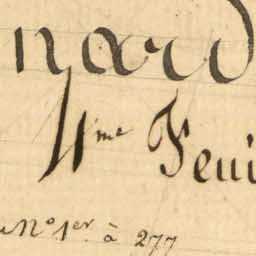 nard
4me Feui
No 1er à 277